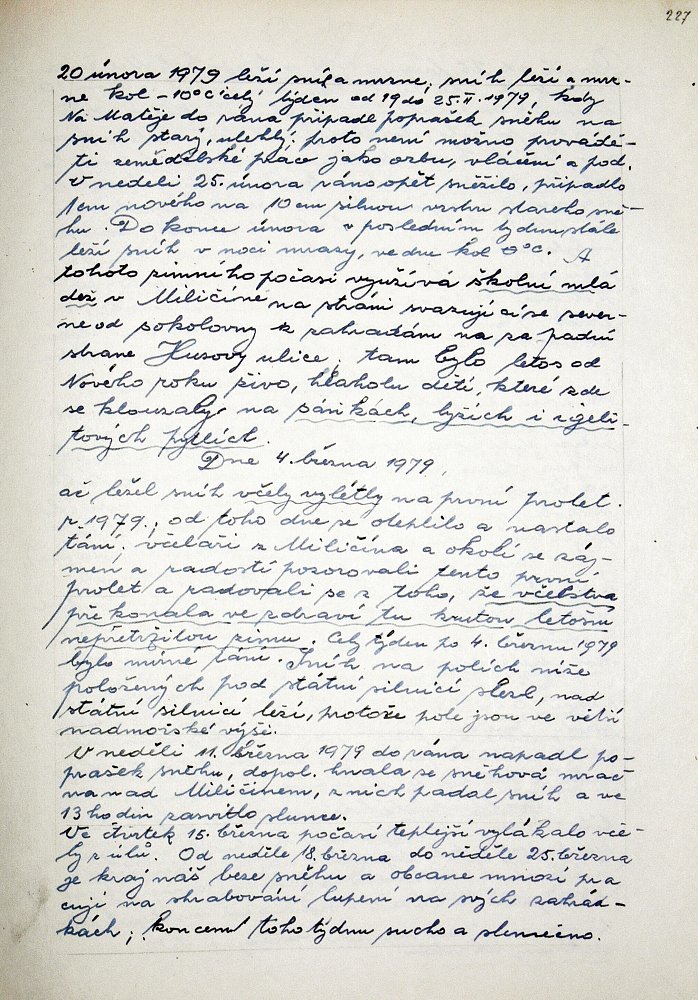 227
20 února 1979 leží sníh a mrzne; sníh leží a mrz-
ne kol -10°C celý týden od 19 do 25.II.1979, kdy
Na Matěje do rána připadl poprašek sněhu na
sníh starý, ulehlý; proto není možno provádě-
ti zemědělské práce jako orbu, vláčení a pod.
V neděli 25. února ráno opět sněžilo, připadlo
1cm nového na 10cm silnou vrstvu starého sně-
hu. Do konce února v posledním týdnu stále
leží sníh v noci mrazy, ve dne kol 0°C. A
tohoto zimního počasí využívá školní mlá
dež v Miličíně na stráni svazující se sever-
ně od sokolovny k zahradám na západní
straně Husovy ulice; tam bylo letos od
Nového roku živo, hlaholu dětí, které zde
se klouzaly na sáňkách, lyžích i igeli-
tových pytlích.
Dne 4. března 1979,
ač ležel sníh včely vylétly na první prolet.
r. 1979.; od toho dne se oteplilo a nastalo
tání; včelaři z Miličína a okolí se záj-
mem a radostí pozorovali tento první
prolet a radovali se z toho, že včelstva
překonala ve zdraví tu krutou letošní
nepřetržitou zimu. Celý týden po 4. březnu 1979
bylo mírné tání. Sníh na polích níže
položených pod státní silnicí slezl, nad
státní silnicí leží, protože pole jsou ve větší
nadmořské výši.
V neděli 11. března 1979 do rána napadl po-
prašek sněhu, dopol. hnala se sněhová mrač
na nad Miličínem, z nich padal sníh a ve
13 hodin zasvitlo slunce.
Ve čtvrtek 15. března počasí teplejší vylákalo vče-
ly z úlů. Od neděle 18. března do neděle 25. března
je kraj náš beze sněhu a občané mnozí pra
cují na shrabování lupení na svých zahrád-
kách; koncem toho týdnu sucho a slunečno.